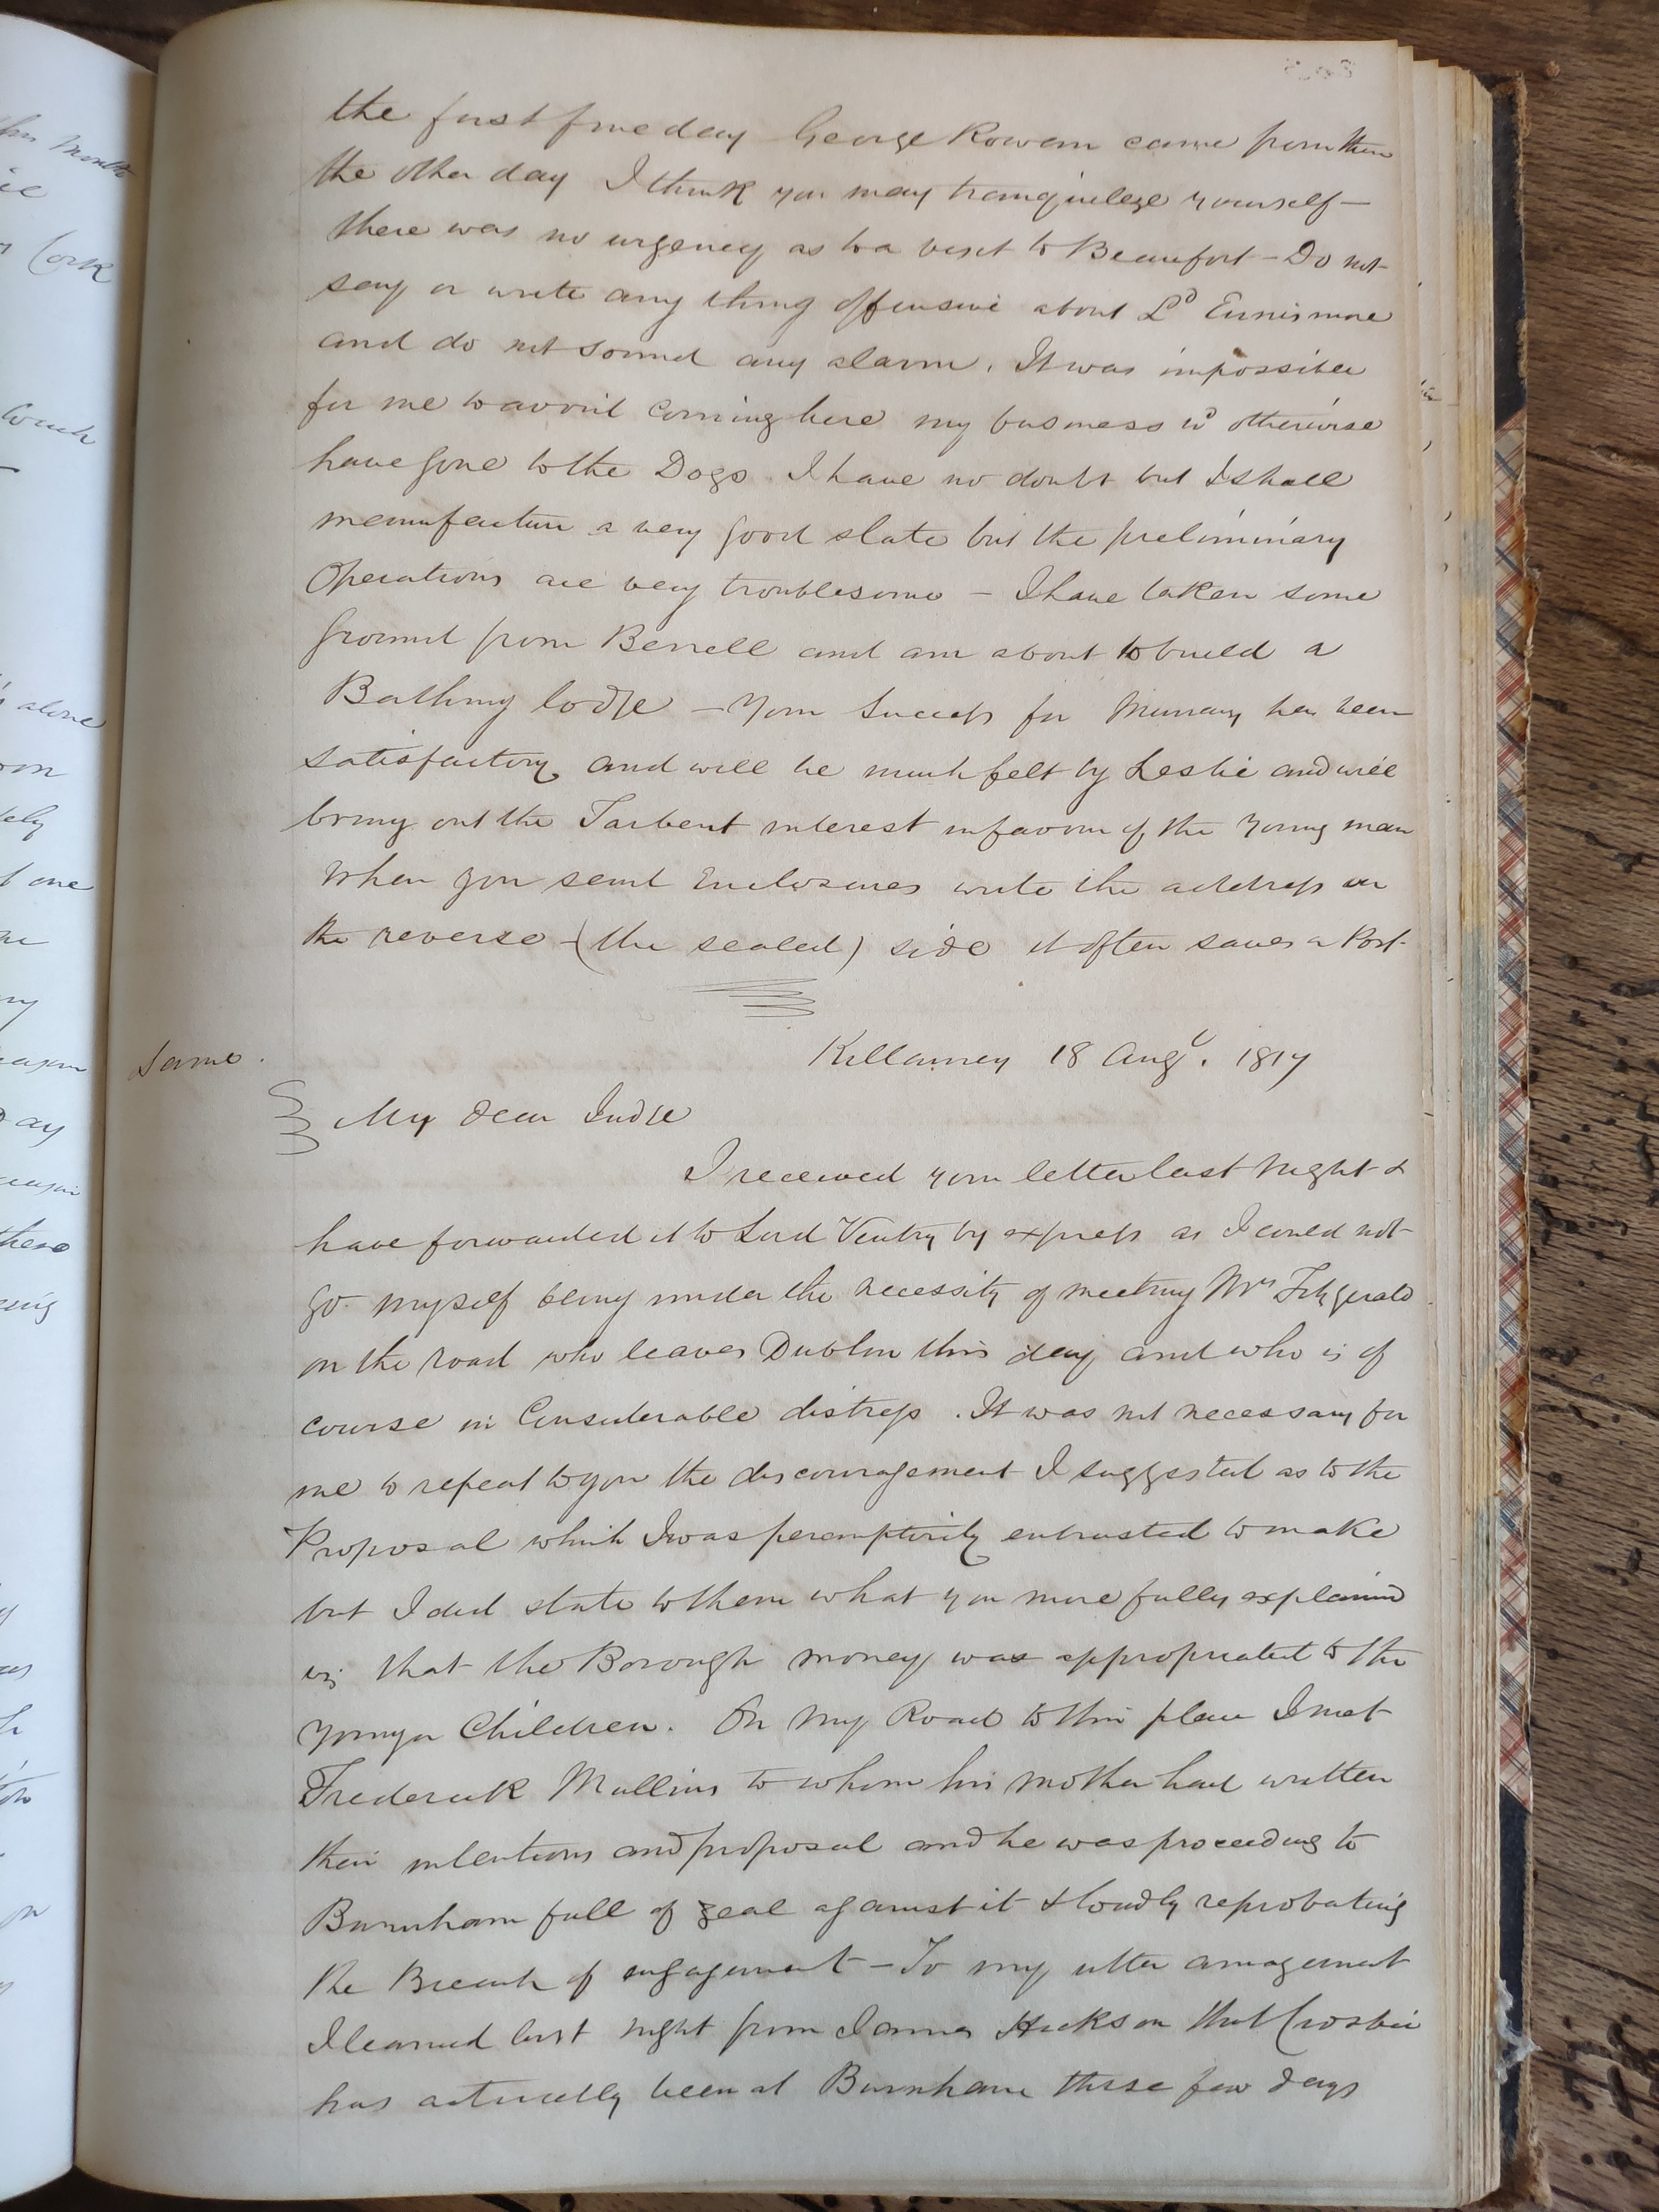 the first fine day George Rowan came from there
the other day I think you may tranquilize yourself —
there was no urgency as to a visit to Beaufort — Do not
say or write any thing offensive about Ld Ennismore
and do not sound any alarm. It was impossible
for me to avoid coming here my business wd otherwise
have gone to the Dogs. I have no doubt but I shall
manufacture a very good slate but the preliminary
Operations are very troublesome — I have taken some
ground from
and am about to build a
Bathing lodge — Your Success for Murray has been
satisfactory and will be much felt by Leslie and will
bring out the Tarbert interest in favour of the Young man
When you send Enclosures write the address on
the reverse — (the sealed) side it often saves a Post.
Killarney 18 Augt. 1817
Same.
My dear Judge
I received your letter last night &
have forwarded it to Lord Ventry by express as I could not
go myself being under the necessity of meeting Mrs Fitzgerald
on the road who leaves Dublin this day and who is of
course in Considerable distress. It was not necessary for
me to repeat to you the discouragement I suggested as to the
Proposal which I was peremptorily entrusted to make
but I did state to them what you more fully explained
viz that the Borough money was appropriated to the
younger Children. On my Road to this place I met
Frederick Mullins to whom his mother had written
their intentions and proposal and he was proceeding to
Burnham full of zeal against it & loudly reprobating
the Breach of engagement — To my utter amazement
I learned last night from James Hickson that Crosbie
has actually been at Burnham these few days